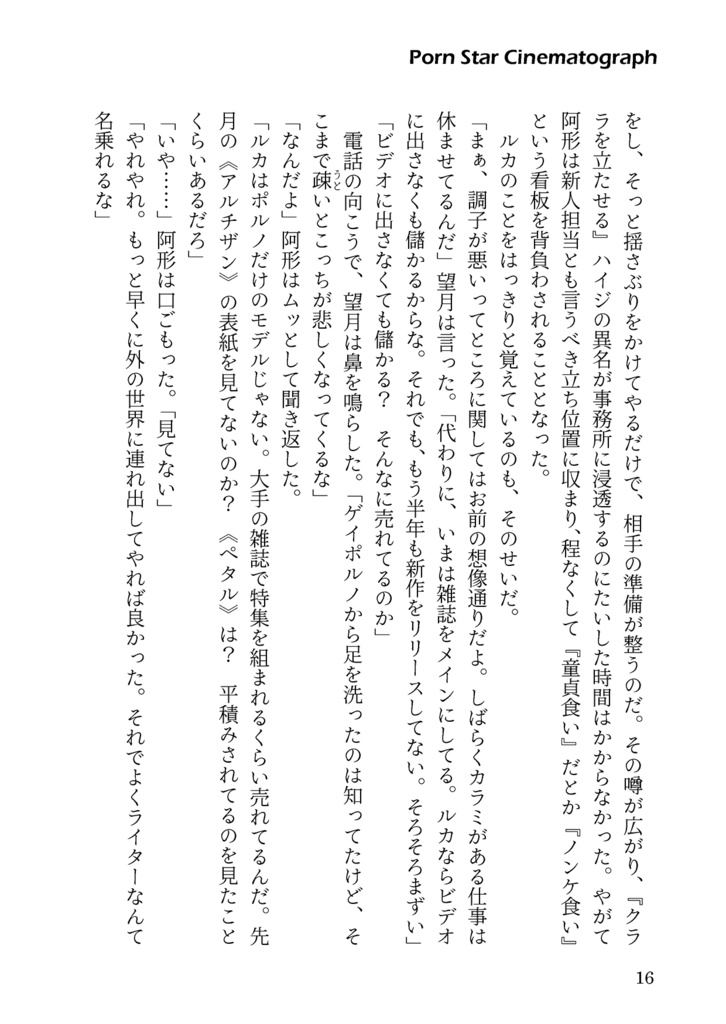 Porn Star Cinematograph
をし、そっと揺さぶりをかけてやるだけで、相手の準備が整うのだ。その噂が広がり、『クラ
ラを立たせる』ハイジの異名が事務所に浸透するのにたいした時間はかからなかった。やがて
阿形は新人担当とも言うべき立ち位置に収まり、程なくして『童貞食い』だとか『ノンケ食い』
という看板を背負わされることとなった。
ルカのことをはっきりと覚えているのも、そのせいだ。
「まぁ、調子が悪いってところに関してはお前の想像通りだよ。しばらくカラミがある仕事は
休ませてるんだ」望月は言った。「代わりに、いまは雑誌をメインにしてる。ルカならビデオ
に出さなくも儲かるからな。それでも、もう半年も新作をリリースしてない。そろそろまずい」
「ビデオに出さなくても儲かる？　そんなに売れてるのか」
電話の向こうで、望月は鼻を鳴らした。「ゲイポルノから足を洗ったのは知ってたけど、そ
こまで疎いとこっちが悲しくなってくるな」
うと
「なんだよ」阿形はムッとして聞き返した。
「ルカはポルノだけのモデルじゃない。大手の雑誌で特集を組まれるくらい売れてるんだ。先
月の《アルチザン》の表紙を見てないのか？　《ペタル》は？　平積みされてるのを見たこと
くらいあるだろ」
「いや……」阿形は口ごもった。「見てない」
「やれやれ。もっと早くに外の世界に連れ出してやれば良かった。それでよくライターなんて
名乗れるな」
16